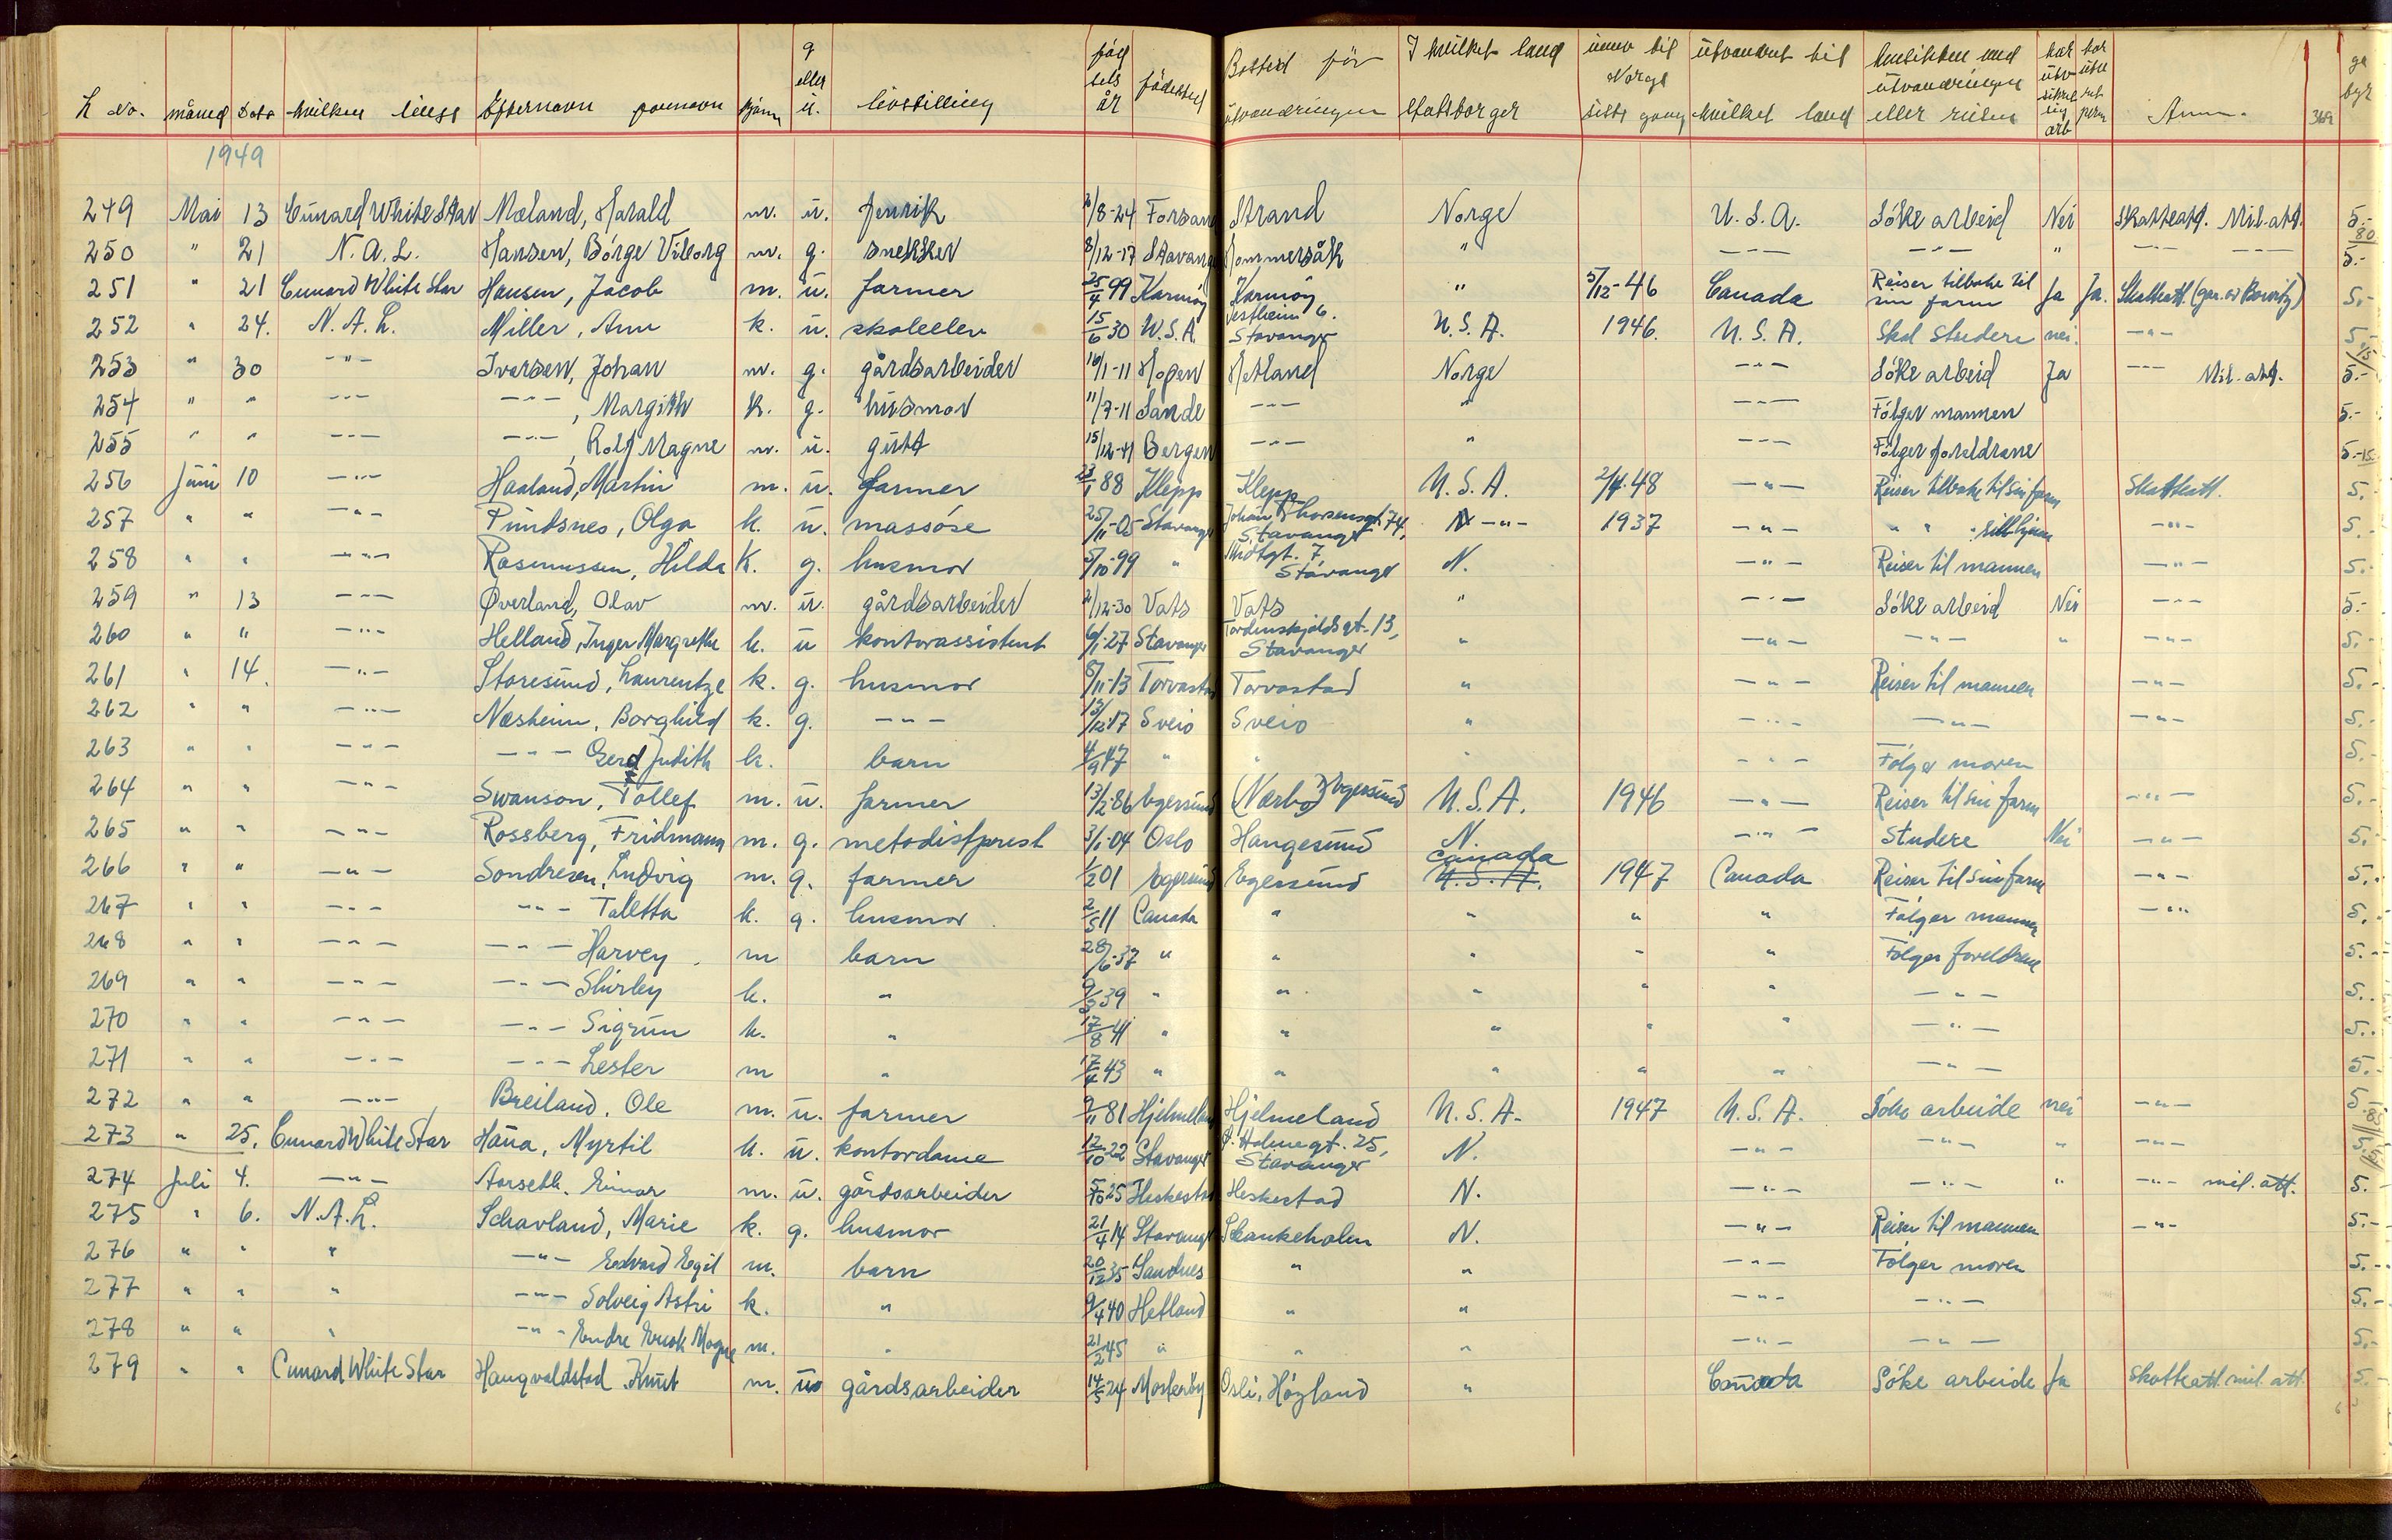 L No. måned Dato hvilken linje Efternavn fornavn kjønn g eller u. livsstilling fødselsår fødested Bosted før utvandringen I hvilket land statsborger innv til Norge siste gang utvandret til hvilket land hensikten med utvandringen eller reisen Anm. gebyr
1949
249 Mai 13 Cunard White Star Mæland, Harald m. u. fenrik 2/8-24 Forsand Strand Norge U.S.A. Söke arbeid Nei Skatteatt. Mil.att. 5.-
250 " 21 N.A.L. Hansen, Börge Viborg m. g. snekker 8/12-17 Stavanger Hommersåk " -"- -"- " -"- -"- 5.-
251 " 21 Cunard White Star Hansen, Jacob m. u. farmer 25/4 99 Karmöy Karmöy " 5/12-46 Canada Reiser tilbake til sin farm Ja Ja. Skatteatt. 5.-
252 " 24. N.A.L. Miller, Ann k. u. skoleelev 15/6 30 U.S.A. Vestheim 6. Stavanger U.S.A. 1946. U.S.A. Skal studere nei. -"- 5.-
253 " 30 -"- Iversen, Johan m. g. gårdsarbeider 16/1-11 Hopen Hetland Norge -"- Söke arbeid Ja -"- Mil.att. 5.-
254 " " -"- -"-, Margith k. g. husmor 11/7-11 Sande -"- " -"- Fölger mannen 5.-
255 " " -"- -"-, Rolf Magne m. u. gutt 15/12-41 Bergen -"- " -"- Fölger foreldrene 5.-
256 Juni 10 -"- Haaland, Martin m. u. farmer 23/1 88 Klepp Klepp U.S.A. 2/4.48 -"- Reiser tilbake til sin farm Skatteatt. 5.-
257 " " -"- Pundsnes, Olga k. u. massöse 25/11-05 Stavanger Johan Thorsensgt. 74, Stavanger -"- 1937 -"- " " sitt hjem -"- 5.-
258 " " -"- Rasmussen, Hilda k. g. husmor 5/10-99 " Midtgt. 7 Stavanger N. -"- Reiser til mannen -"- 5.-
259 " 13 -"- Øverland, Olav m. u. gårdsarbeider 2/12-30 Vats Vats " -"- Söke arbeid Nei -"- 5.-
260 " " -"- Helland, Inger Margrethe k. u kontorassistent 6/1-27 Stavanger Tordenskjoldsgt. 13, Stavanger " -"- -"- " -"- 5.-
261 " 14. -"- Storesund, Laurentze k. g. husmor 8/11-13 Torvastad Torvastad " -"- Reiser til mannen -"- 5.-
262 " " -"- Næsheim, Borghild k. g. -"- 13/12-17 Sveio Sveio " -"- -"- -"- 5.-
263 " " -"- -"- Gerd Judith k. barn 4/9 47 " " " -"- Fölger moren 5.-
264 " " -"- Swanson, Tollef m. u. farmer 13/2-86 Egersund (Nærbö) Egersund U.S.A. 1946 -"- Reiser til sin farm -"- 5.-
265 " " -"- Rossberg, Fridmann m. g. metodistprest 3/1-04 Oslo Haugesund N. -"- Studere Nei -"- 5.-
266 " " -"- Sondresen, Ludvig m. g. farmer 1/2 01 Egersund Egersund Canada U.S.A. 1947 Canada Reiser til sin farm -"- 5.-
267 " " -"- -"- Taletta k. g. husmor 2/5 11 Canada " " " " Fölger mannen -"- 5.-
268 " " -"- -"- Harvey m barn 28/6-37 " " " " " Fölger foreldrene 5.-
269 " " -"- -"- Shirley k. " 9/3 39 " " " " " -"- 5.-
270 " " -"- -"- Sigrun k. " 17/8 41 " " " " " -"- 5.-
271 " " -"- -"- Lester m " 17/4 43 " " " " " -"- 5.-
272 " " -"- Breiland, Ole m. u. farmer 9/11 81 Hjelmeland Hjelmeland U.S.A. 1947 U.S.A. Söke arbeide nei -"- 5.-
273 " 25. Cunard White Star Haua, Myrtil k. u. kontordame 12/10 22 Stavanger St. Holmegt. 25, Stavanger N. -"- -"- " -"- 5.-
274 Juli 4. -"- Aarseth, Einar m. u. gårdsarbeider 5/10 25 Heskestad Heskestad N. -"- -"- " -"- mil.att. 5.-
275 " 6. N.A.L. Schavland, Marie k. g. husmor 21/4 14 Stavanger Skankeholen N. -"- Reiser til mannen -"- 5.-
276 " " " -"- Edvard Egil m. barn 20/12 35 Sandnes " " -"- Fölger moren 5.-
277 " " " -"- Solveig Astri k. " 9/4 40 Hetland " " -"- -"- 5.-
278 " " " -"- Endre Magne m. " 21/2 45 " " " -"- -"- 5.-
279 " " Cunard White Star Haugvaldstad, Knut m. u. gårdsarbeider 14/5 24 Mosteröy Högland " Canada Söke arbeide Ja Skatteatt. mil.att. 5.-